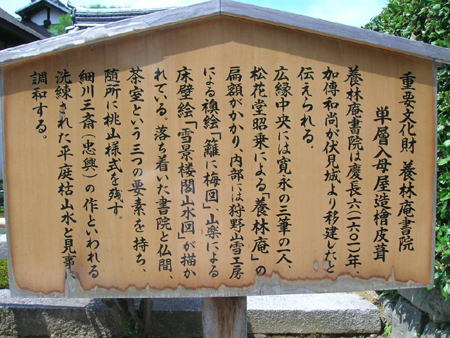 重要文化財 養林庵書院
単層入母屋造檜皮葺
養林庵書院は慶長六(一六〇一)年、
加傳和尚が伏見城より移建したと
伝えられる。
広縁中央には寛永の三筆の一人、
松花堂昭乗による「養林庵」の
扁額がかかり、内部には狩野山雪工房
による襖絵「籬に梅図」、山楽による
床壁絵「雪景楼閣山水図」が描か
れている。落ち着いた書院と仏間、
茶室という三つの要素を持ち、
随所に桃山様式を残す。
細川三斎(忠興)の作といわれる
洗練された平庭枯山水と見事
調和する。